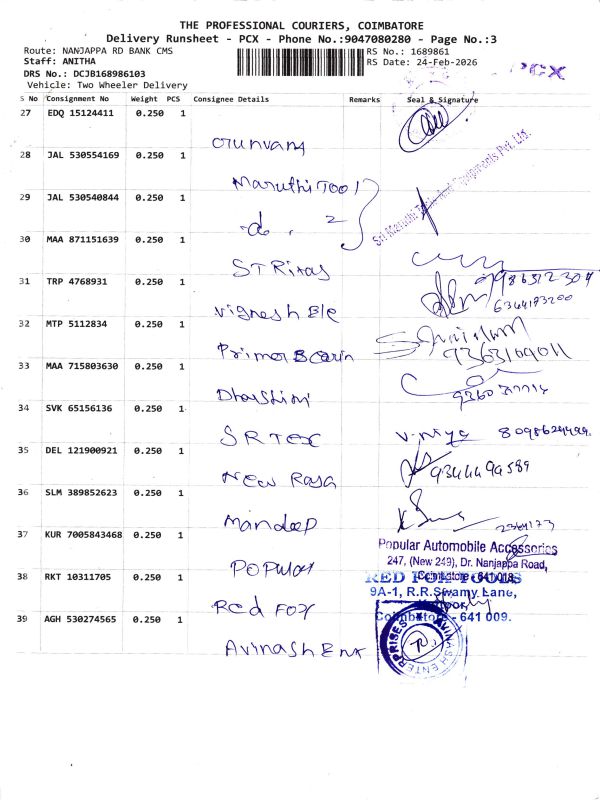 THE PROFESSIONAL COURIERS, COIMBATORE
Delivery Runsheet - PCX - Phone No.:9047080280 - Page No.:3
Route: NANJAPPA RD BANK CMS
RS No.: 1689861
Staff: ANITHA
RS Date: 24-Feb-2026
DRS No.: DCJB168986103
PCX
Vehicle: Two Wheeler Delivery
S No Consignment No Weight PCS Consignee Details Remarks Seal & Signature
27 EDQ 15124411 0.250 1
28 JAL 530554169 0.250 1 Maruthi Tool
Sri Maruthi Tools and Equipments Pvt. Ltd.
29 JAL 530540844 0.250 1 -do. 2
30 MAA 871151639 0.250 1
31 TRP 4768931 0.250 1 Vignesh Ele
6364193200
32 MTP 5112834 0.250 1
9363109011
33 MAA 715803630 0.250 1 Dharshini
34 SVK 65156136 0.250 1 SRTEX
35 DEL 121900921 0.250 1 New Raja
9344499589
36 SLM 389852623 0.250 1 Mandeep
37 KUR 7005843468 0.250 1 Popular
Popular Automobile Accessories
247, (New 249), Dr. Nanjappa Road,
Coimbatore - 641 018.
38 RKT 10311705 0.250 1 Red Fox
RED FOX TOOLS
9A-1, R.R.Swamy Lane,
Coimbatore - 641 009.
39 AGH 530274565 0.250 1 Avinash Ent
AVINASH ENTERPRISES